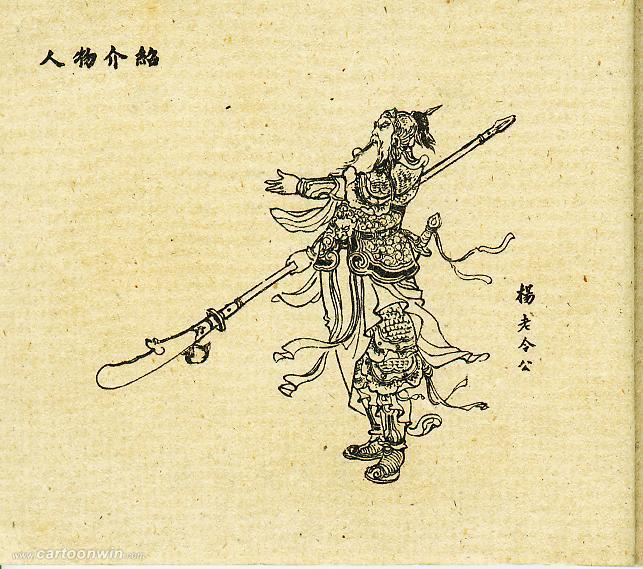 人物介紹
楊老令公
www.cartoonwin.com